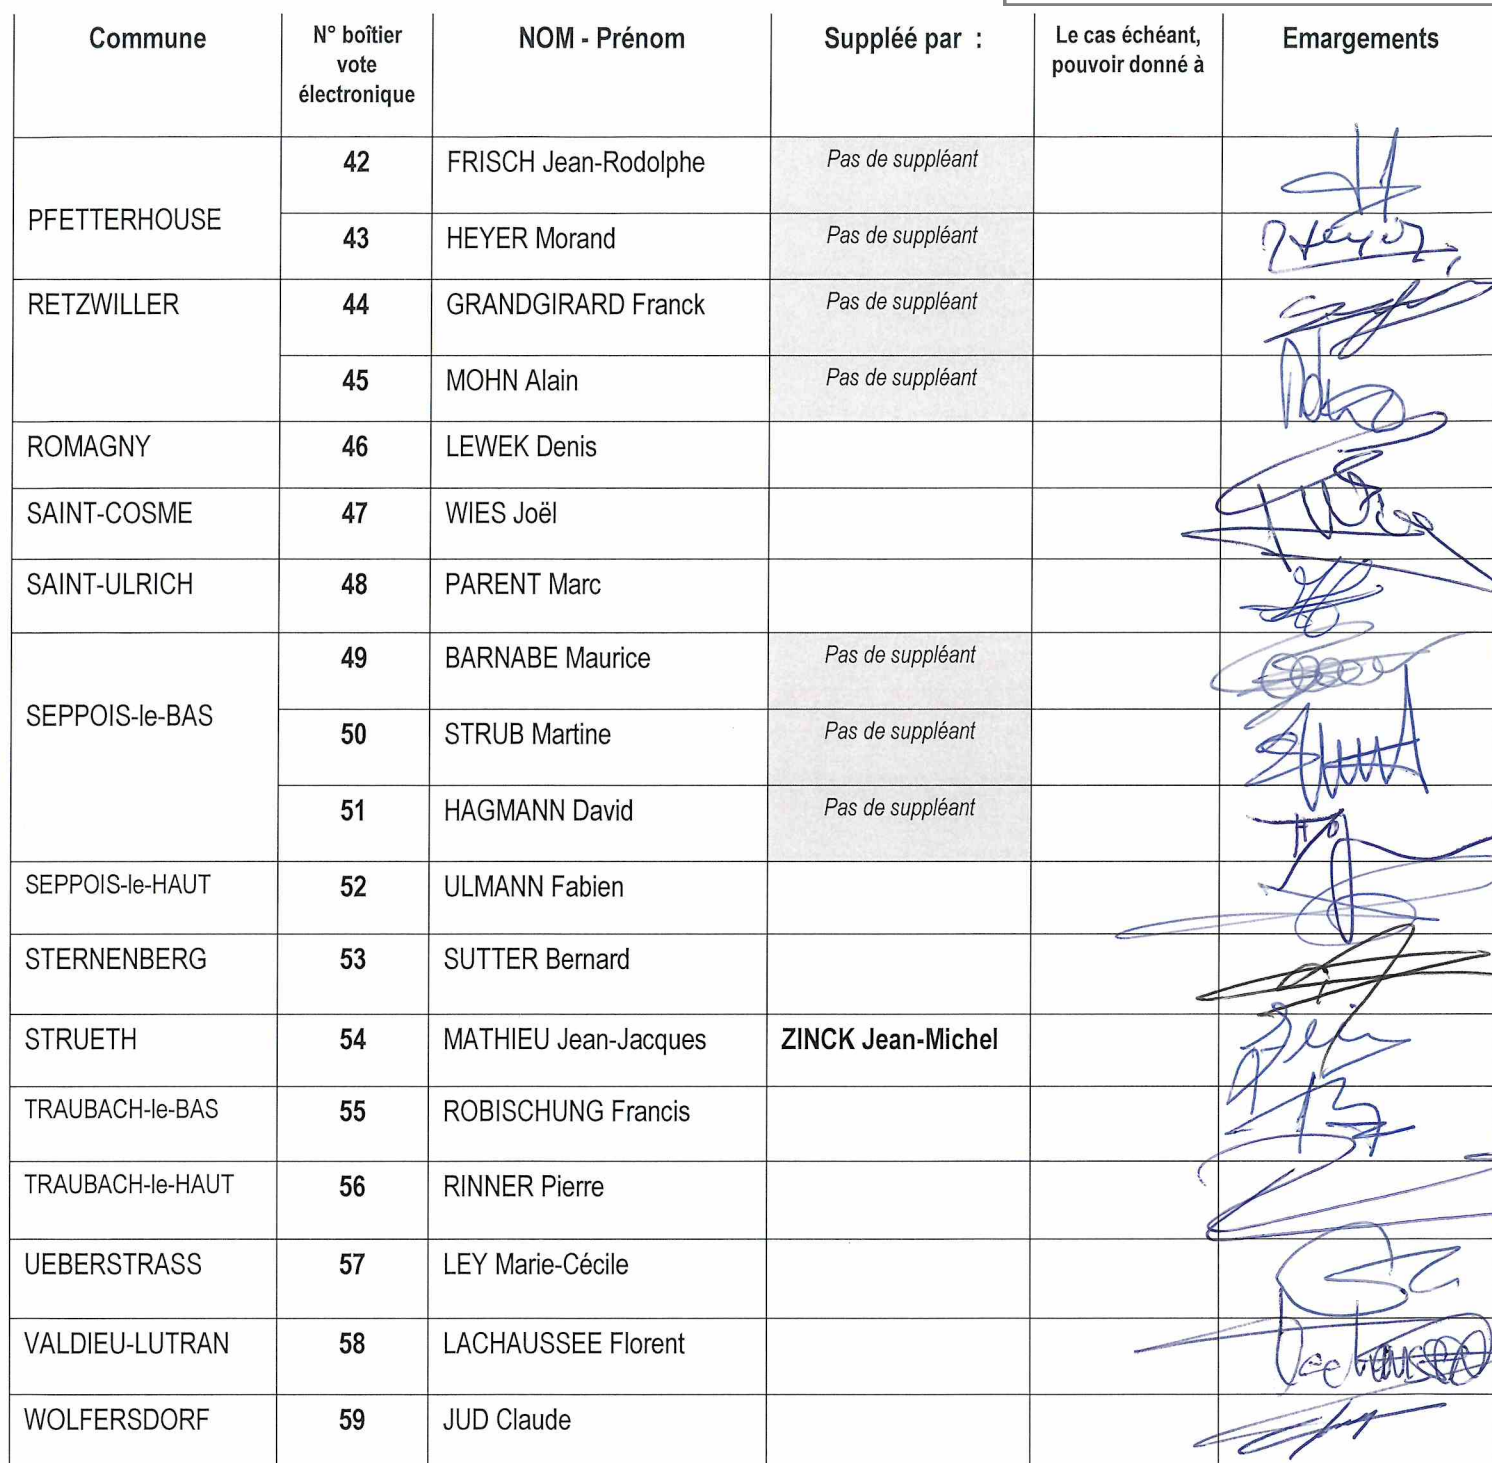 Commune N° boîtier vote électronique NOM - Prénom Suppléé par : Le cas échéant, pouvoir donné à Emargements
PFETTERHOUSE 42 FRISCH Jean-Rodolphe Pas de suppléant
43 HEYER Morand Pas de suppléant
RETZWILLER 44 GRANDGIRARD Franck Pas de suppléant
45 MOHN Alain Pas de suppléant
ROMAGNY 46 LEWEK Denis
SAINT-COSME 47 WIES Joël
SAINT-ULRICH 48 PARENT Marc
SEPPOIS-le-BAS 49 BARNABE Maurice Pas de suppléant
50 STRUB Martine Pas de suppléant
51 HAGMANN David Pas de suppléant
SEPPOIS-le-HAUT 52 ULMANN Fabien
STERNENBERG 53 SUTTER Bernard
STRUETH 54 MATHIEU Jean-Jacques ZINCK Jean-Michel
TRAUBACH-le-BAS 55 ROBISCHUNG Francis
TRAUBACH-le-HAUT 56 RINNER Pierre
UEBERSTRASS 57 LEY Marie-Cécile
VALDIEU-LUTRAN 58 LACHAUSSEE Florent
WOLFERSDORF 59 JUD Claude